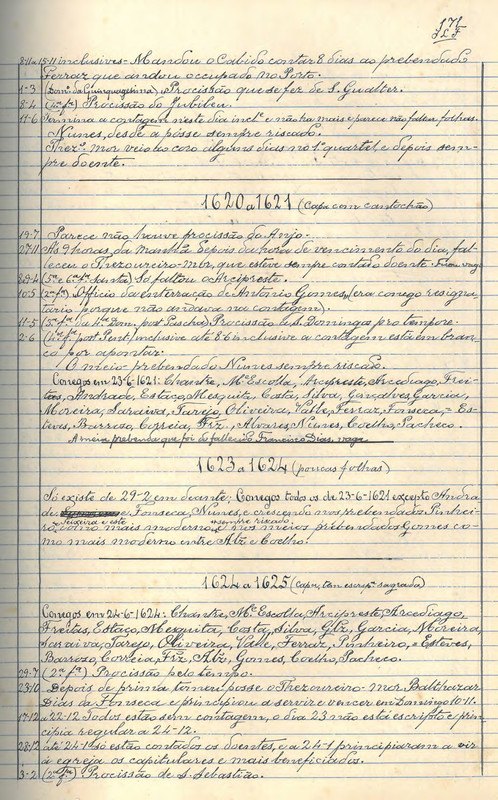 171
8-11 a 15-11 inclusives - Mandou o Cabido contar 8 dias ao prebendado
Ferraz que andou occupado no Porto.
1-3 (Dom.º da Quinquagesima) Procissão que se fez de S. Gualter.
8-4 (4ª fª) Procissão do Jubileu.
11-6 Termina a contagem neste dia incl.e e não ha mais e parece não faltar folhas.
Nunes, desde a posse sempre riscado.
Thez.º mor veio ao coro alguns dias no 1º quartel, e depois sem-
pre doente.
1620 a 1621 (Capa com cantochão)
19-7 Parece não houve procissão do Anjo.
27-11 As 9 horas da manhã depois da hora de vencimento do dia, fal-
leceu o Thezoureiro-mor, que esteve sempre contado doente. Ficou vaga
8 e 9-4 (5ª e 6ª fª Santa) Só faltou o Arcipreste.
10-5 (2ª fª) Officio da enterração de Antonio Gomes, (era conego resigna-
tario porque não andava na contagem).
11-5 (3ª fª da 4ª Dom. post Pascha) Procissão de S. Domingo pro tempore.
2-6 (4ª fª post Pent.) inclusive até 8-6 inclusive a contagem está em bran-
co por apontar.
O meio prebendado Nunes sempre riscado.
Conegos em 23-6-1621: Chantre, Mº Escolla, Arcipreste, Arcediago, Frei-
tas, Andrade, Estaço, Mesquita, Costa, Silva, Gonçalves, Garcia,
Moreira, Saraiva, Tarejo, Oliveira, Valle, Ferraz, Fonseca, - Es-
teves, Barrozo, Correia, Frz., Alvares, Nunes, Coelho, Pacheco.
A meia prebenda que foi do fallecido Francisco Dias, vaga
1623 a 1624 (poucas folhas)
Só existe de 29-2 em deante; Conegos todos os de 23-6-1621 excepto Andra-
de, e Fonseca, Nunes, e crescendo nos prebendados Pinhei-
Teixeira e este sempre riscado
ro, como mais moderno, e nos meios prebendados Gomes co-
mo mais moderno entre Alz e Coelho.
1624 a 1625 (Capa, tem escrip.ª sagrada)
Conegos em 24-6-1624: Chantre, Mº Escolla, Arcipreste, Arcediago,
Freitas, Estaço, Mesquita, Costa, Silva, Glz, Garcia, Moreira,
Saraiva, Tarejo, Oliveira, Valle, Ferraz, Pinheiro, - Esteves,
Barrozo, Correia, Frz, Alz, Gomes, Coelho, Pacheco.
29-7 (2ª fª) Procissão pelo tempo.
23-10 Depois de prima tomou posse o Thezoureiro-mor Balthazar
Dias da Fonseca e principiou a servir e vencer em Domingo 10-11.
17-12 a 22-12 Todos estão sem contagem, o dia 23 não está escripto e prin-
cipia regular a 24-12.
28-12 até 24-1 só estão contados os doentes, e a 24-1 principiaram a vir
á egreja os capitulares e mais beneficiados.
3-2 (2ª fª) Procissão de S. Sebastião.